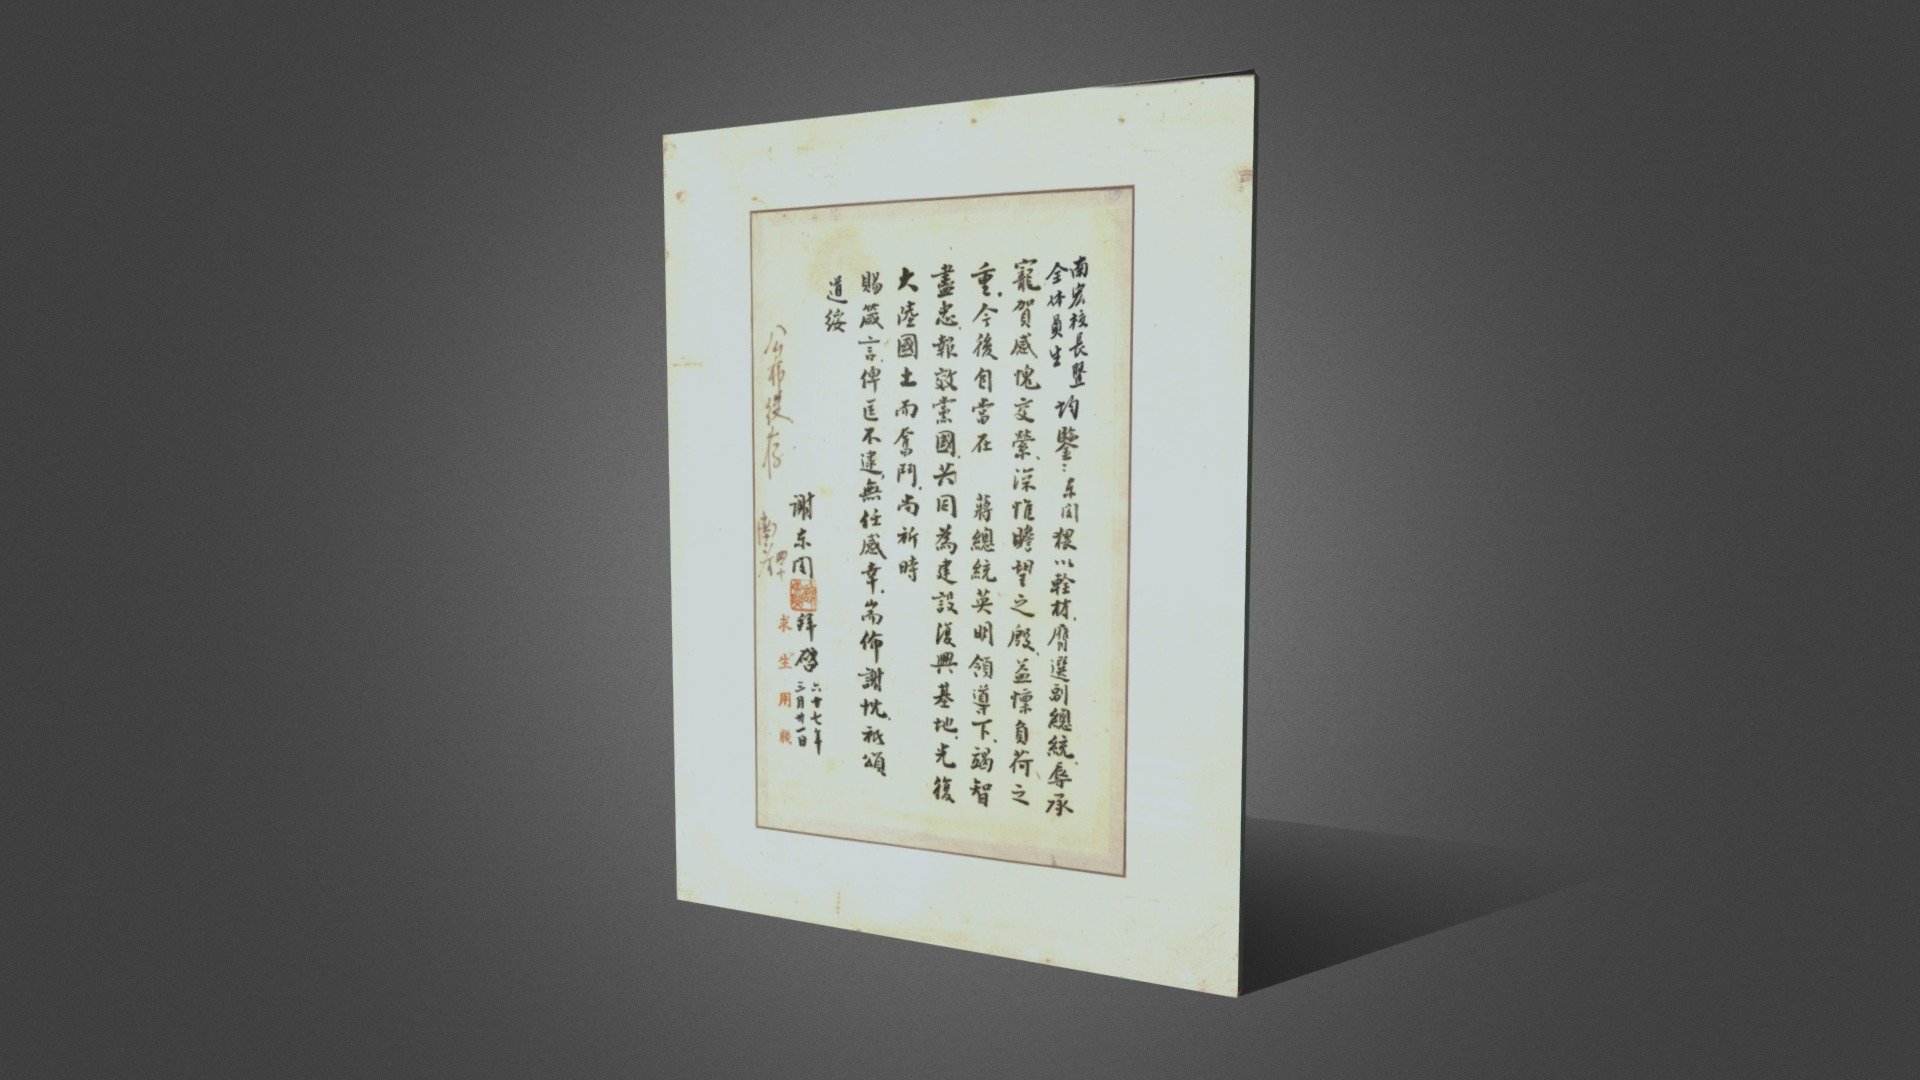 南宏校長暨
全体員生
均鑒：东闵猥以輇材，膺選副總統，辱承
寵賀，感愧交縈，深惟瞻望之殷，益懍負荷之
重，今後自當在　蔣總統英明領導下，竭智
盡忠，報效黨國，共同為建設復興基地，光復
大陸國土而奮鬥，尚祈時
賜箴言，俾匡不逮，無任感幸，耑佈謝忱，祗頌
道綏
謝东闵
拜啓
六十七年
三月廿一日
求生用牋